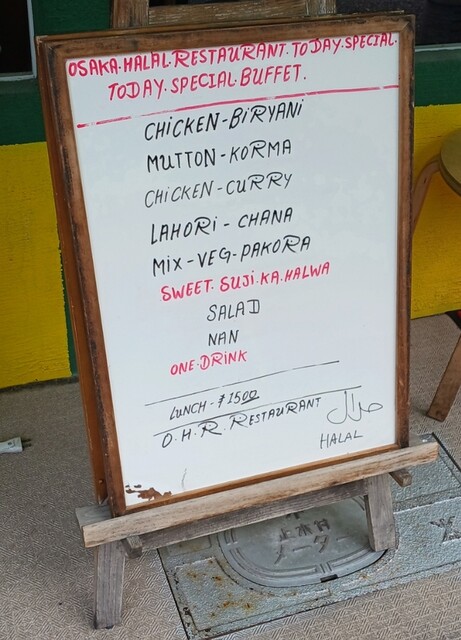 OSAKA.HALAL.RESTAURANT.TODAY.SPECIAL.
TODAY.SPECIAL.BUFFET.
CHICKEN-BIRYANI
MUTTON-KORMA
CHICKEN-CURRY
LAHORI-CHANA
MIX-VEG-PAKORA
SWEET.SUJI.KA.HALWA
SALAD
NAN
ONE.DRINK
LUNCH-¥1500
O.H.R.RESTAURANT
حلال
HALAL
止水栓
メーター